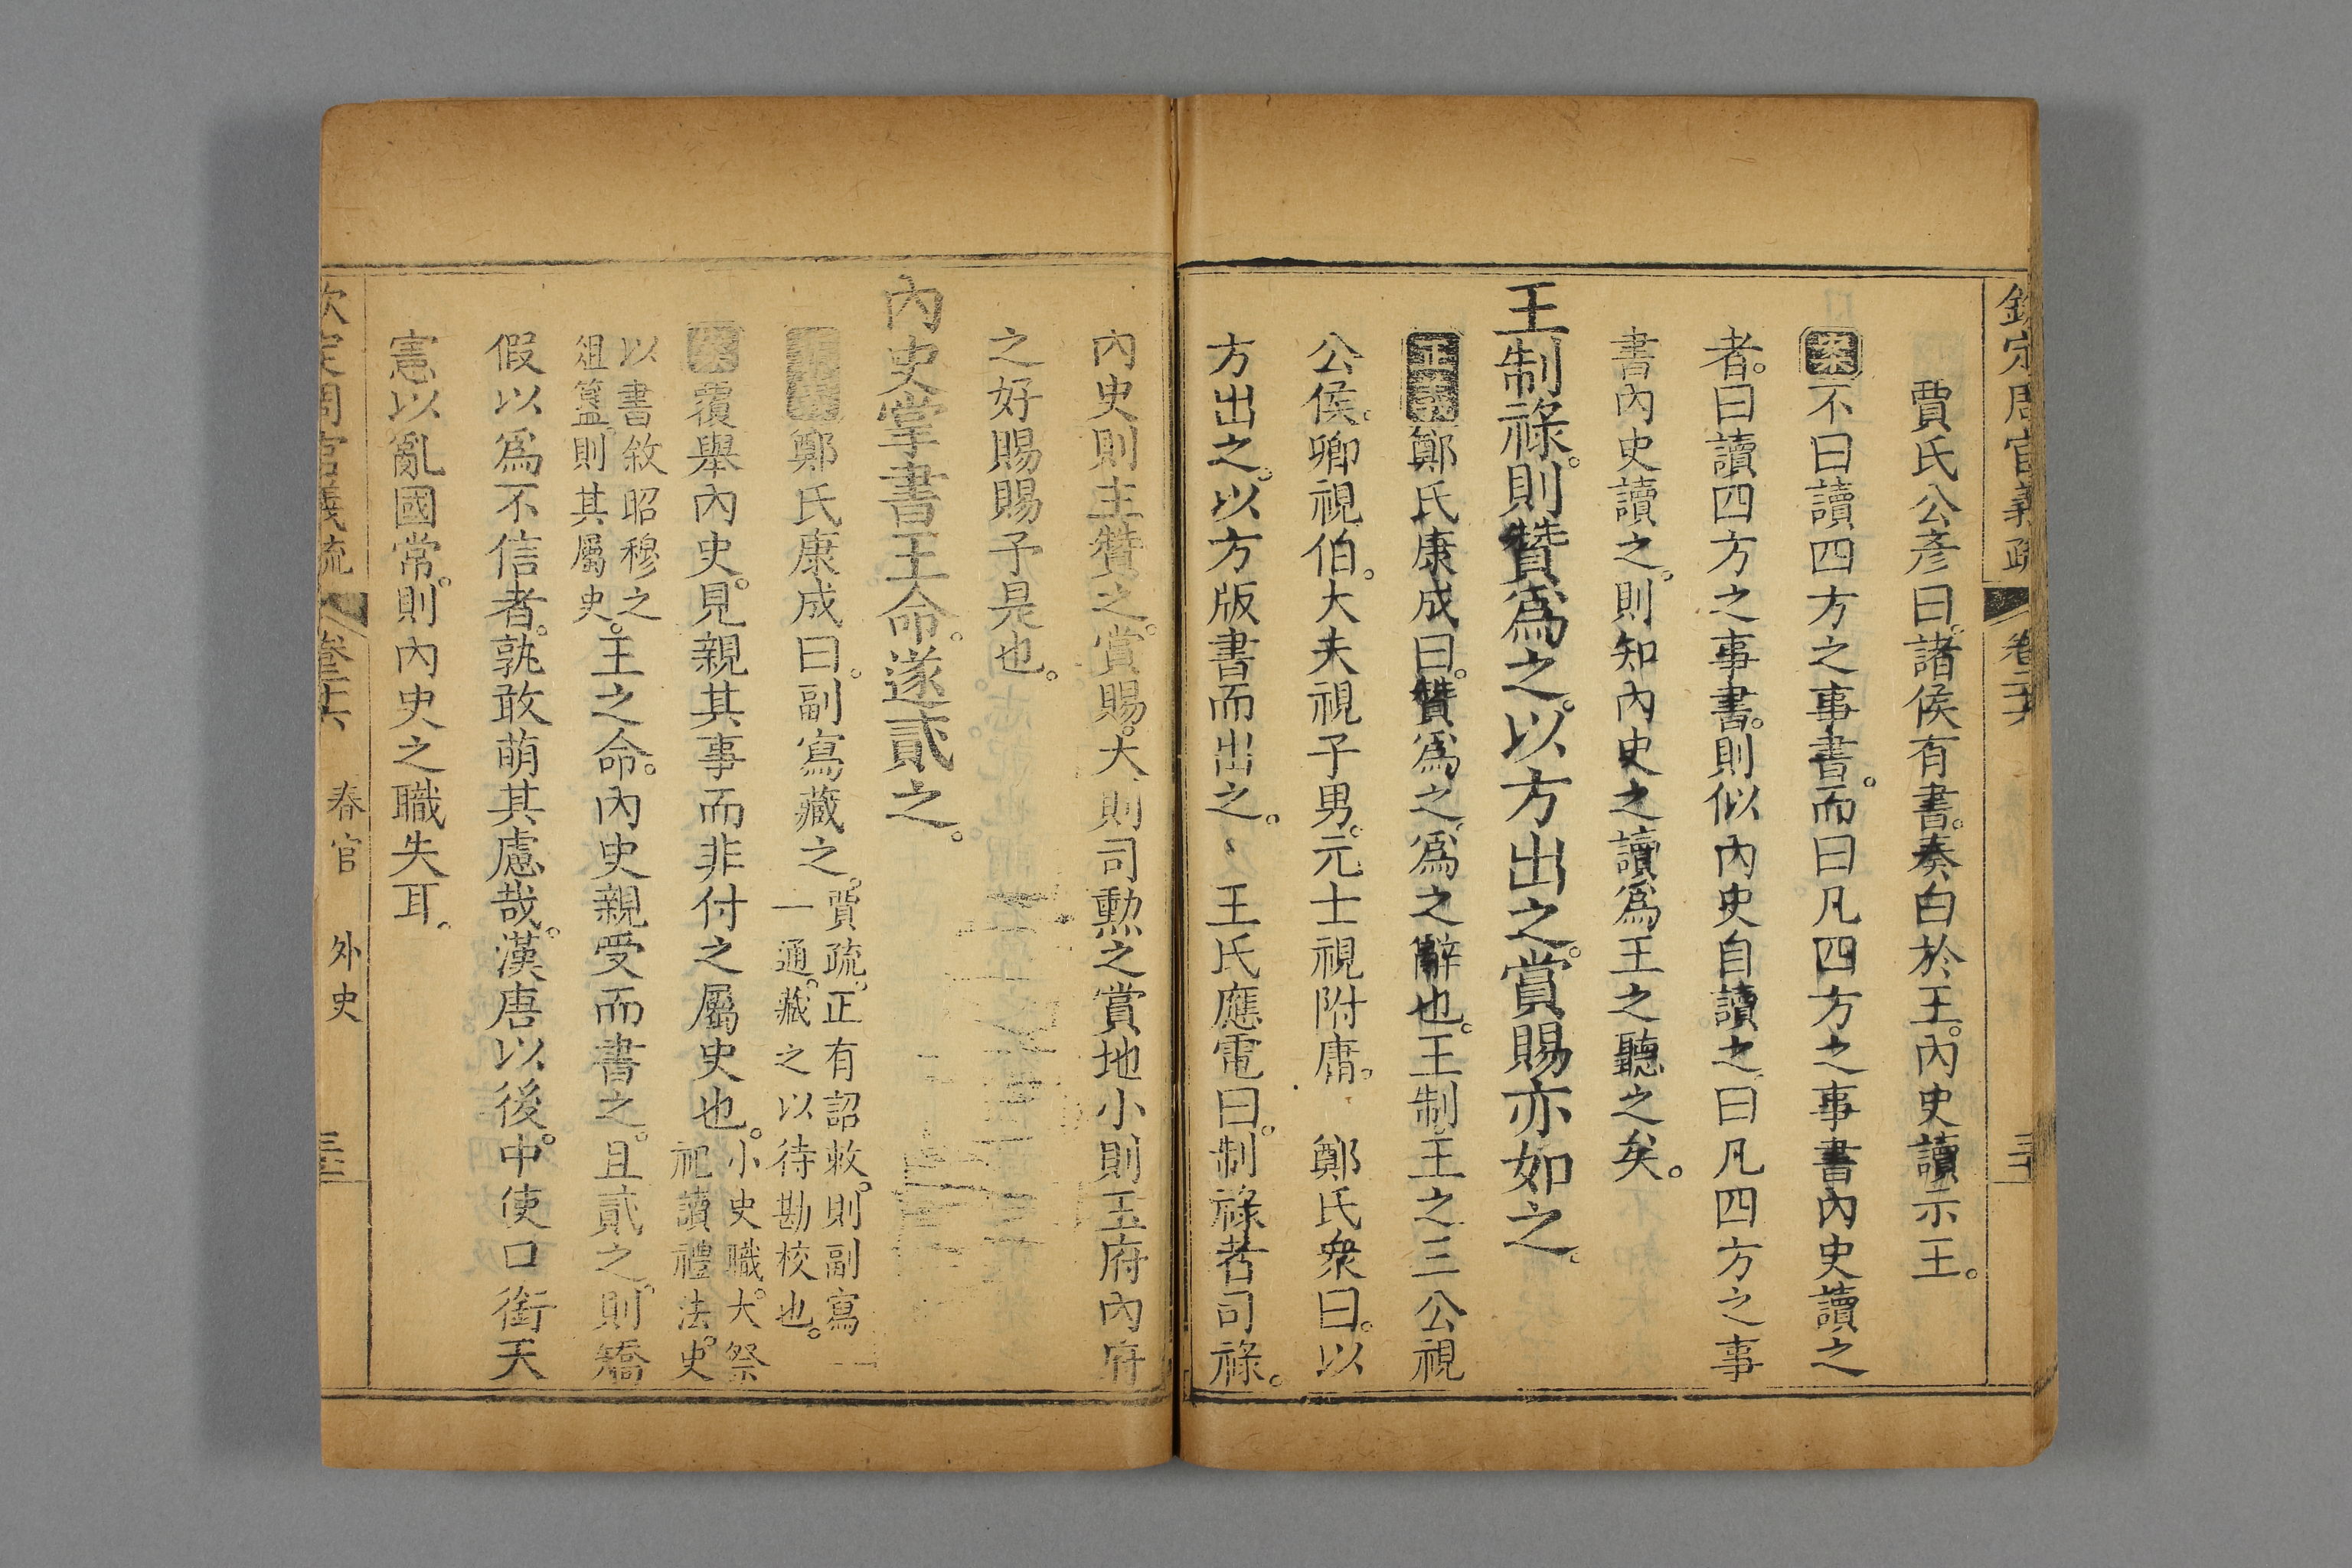 欽定周官義疏 卷二十六
賈氏公彥曰。諸侯有書。奏白於王。內史讀示王。
案不曰讀四方之事書。而曰凡四方之事書內史讀之
者。曰讀四方之事書。則似內史自讀之。曰凡四方之事
書內史讀之。則知內史之讀爲王之聽之矣。
王制祿。則贊爲之。以方出之。賞賜亦如之。
正義鄭氏康成曰。贊爲之。爲之辭也。王制。王之三公視
公侯。卿視伯。大夫視子男。元士視附庸。 鄭氏衆曰。以
方出之。以方版書而出之。 王氏應電曰。制祿者司祿。
內史則主贊之。賞賜。大則司勲之賞地小則玉府內府
之好賜賜予是也。
內史掌書王命。遂貳之。
鄭氏康成曰。副寫藏之。賈疏。正有詔敕。則副寫
一通。藏之以待勘校也。
案覆舉內史。見親其事而非付之屬史也。小史職。大祭
祀讀禮法。史
以書敘昭穆之
俎簋。則其屬史。王之命。內史親受而書之。且貳之。則矯
假以爲不信者。孰敢萌其慮哉。漢唐以後。中使口銜天
憲以亂國常。則內史之職失耳。
欽定周官義疏 卷二十六 春官 外史